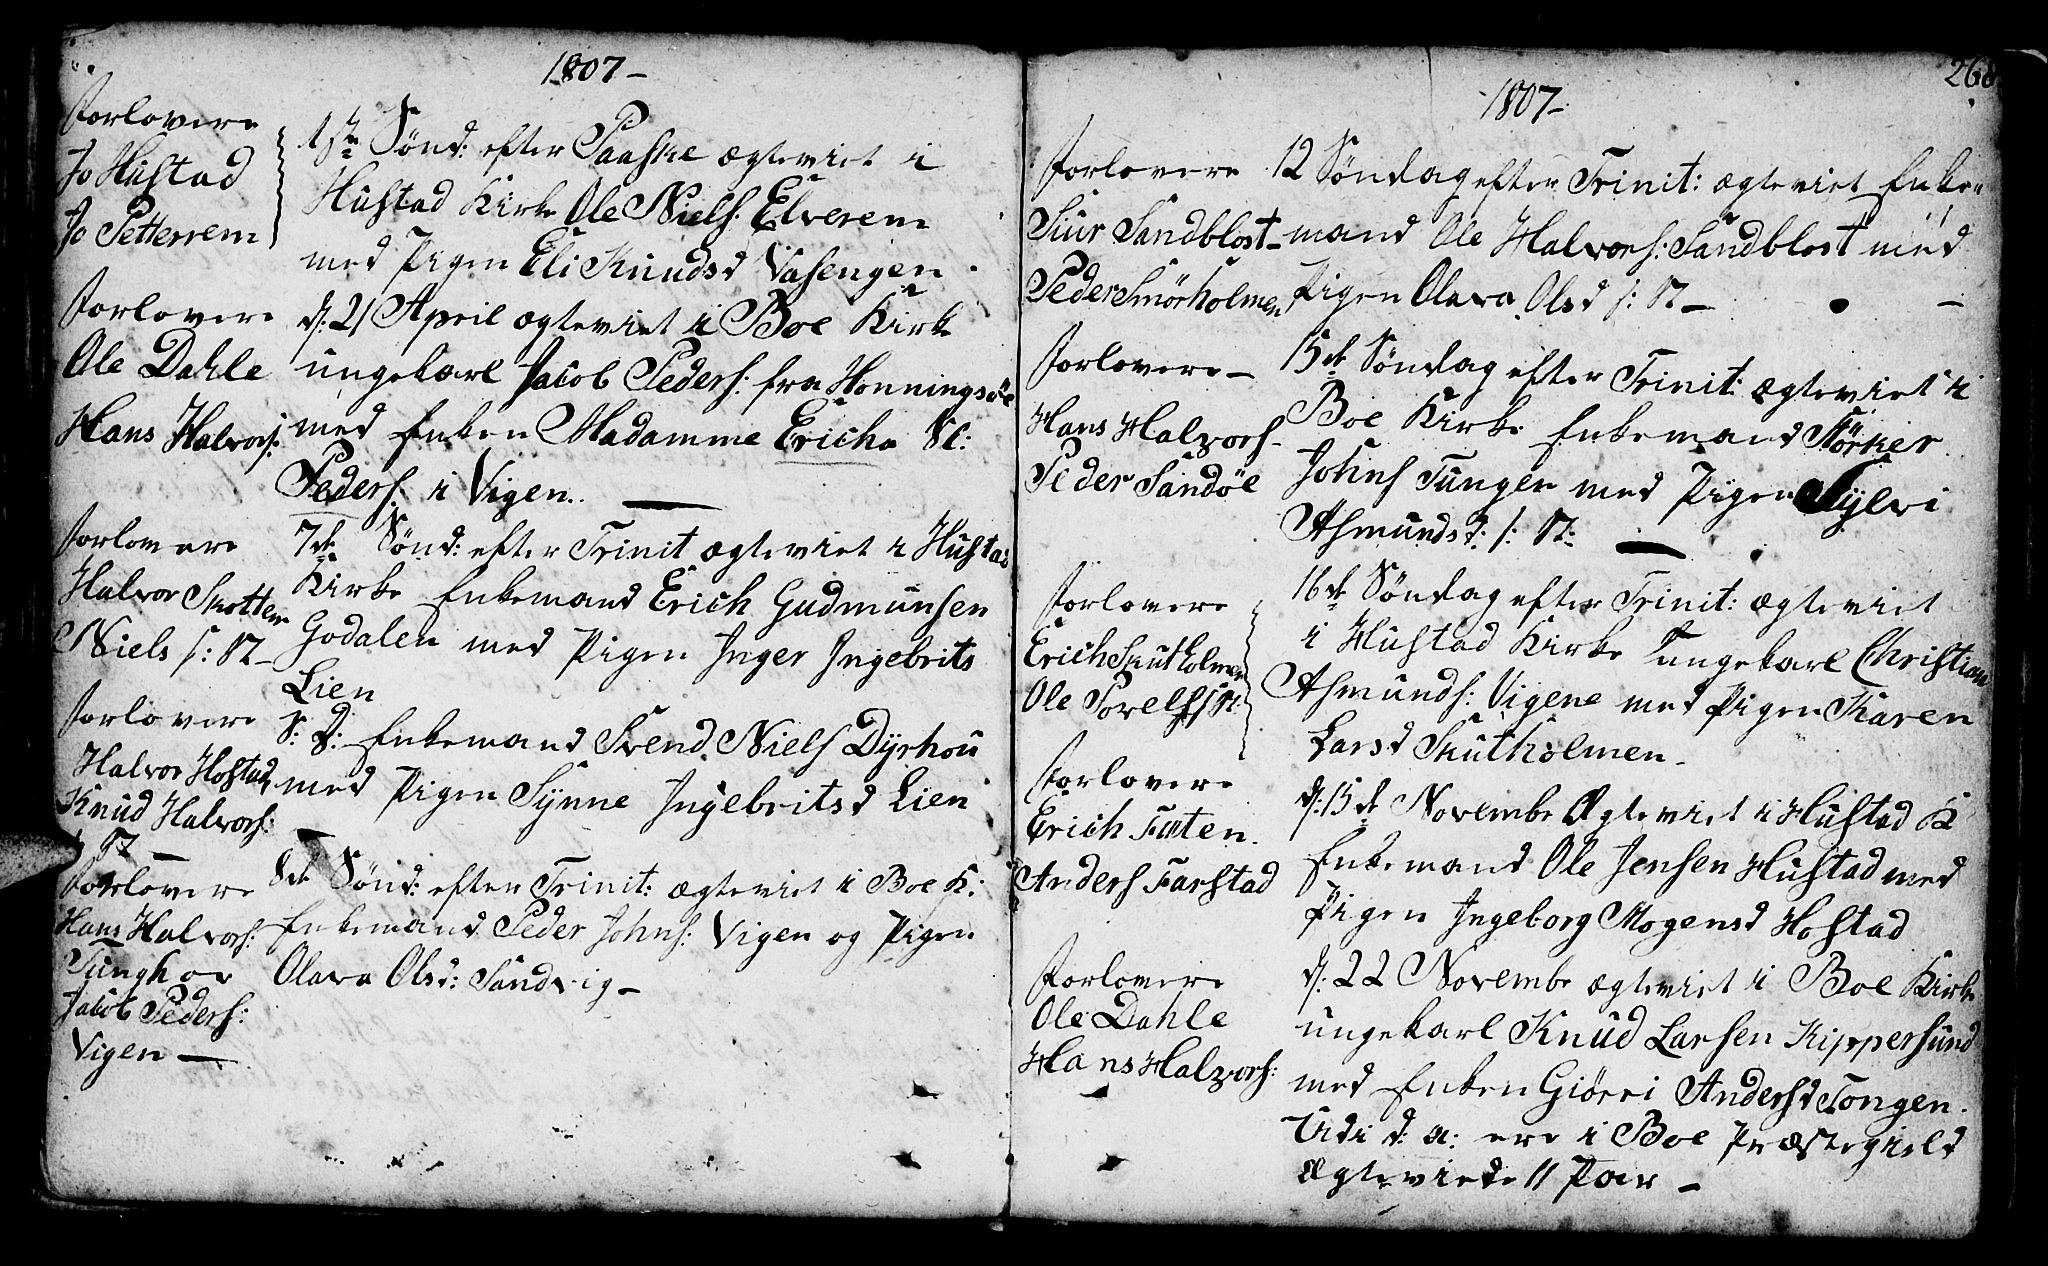 1807 –
Forlovere
Jo Hustad
Jo Petterrem
1ste Sønd: efter Paaske ægteviet i
Hustad Kirke Ole Niels: Elverem
med Pigen Eli Knudsd Vasengen.
Forlovere
Ole Dahle
Hans Halvors:
d: 21 April ægteviet i Boe Kirke
ungekarl Jacob Peders: fra Honningsøe
med Enken Madamme Ericha Sl:
Peders: i Vigen. —
Forlovere
Halvor Skotten
Niels s: St –
7de Sønd: efter Trinit ægteviet i Hustad
Kirke Enkemand Erich Gudmunsen
Godalen med Pigen Inger Ingebrits
Lien
Forlovere
Halvor Hostad
Knud Halvors:
s: St —
S: D: Enkemand Svend Niels Dyrhou
med Pigen Synne Ingebritsd Lien
Forlovere
Hans Halvors:
Tunghor
Jacob Peders:
Vigen —
8de Sønd: efter Trinit: ægteviet i Boe K:
Enkemand Peder Johns: Vigen og Pigen
Olava Olsd: Sandvig –
268
1807 –
Forlovere
Siur Sandblost –
Peder Smörholmen
12 Söndag efter Trinit: ægteviet Enke-
mand Ole Halvors: Sandblost med
Pigen Olava Olsd s: St –
Forlovere –
Hans Halvors –
Peder Sandöe
15de Söndag efter Trinit: ægteviet i
Boe Kirke Enkemand Störker
Johns Tungen med Pigen Sylvi
Asmundsd: s: St: —
Forlovere
Erich Skutholmen
Ole Povels s: St:
16de Söndag efter Trinit: ægteviet
i Hustad Kirke Tungekarl Christian
Asmunds: Vigene med Pigen Karen
Larsd Skutholmen –
Forlovere
Erich Farten.
Anders Farstad
d: 15de Novembe Ægteviet i Hustad K
Enkemand Ole Jensen Hustad med
Pigen Ingeborg Mogensd Hostad
Forlovere
Ole Dahle
Hans Halvors:
d: 22 Novembe ægteviet i Boe Kirke
ungekarl Knud Larsen Kippersund
med Enken Giörri Andersd Tongen.
Udi d: a: ere i Boe Præstegield
Ægteviede 11 Par –